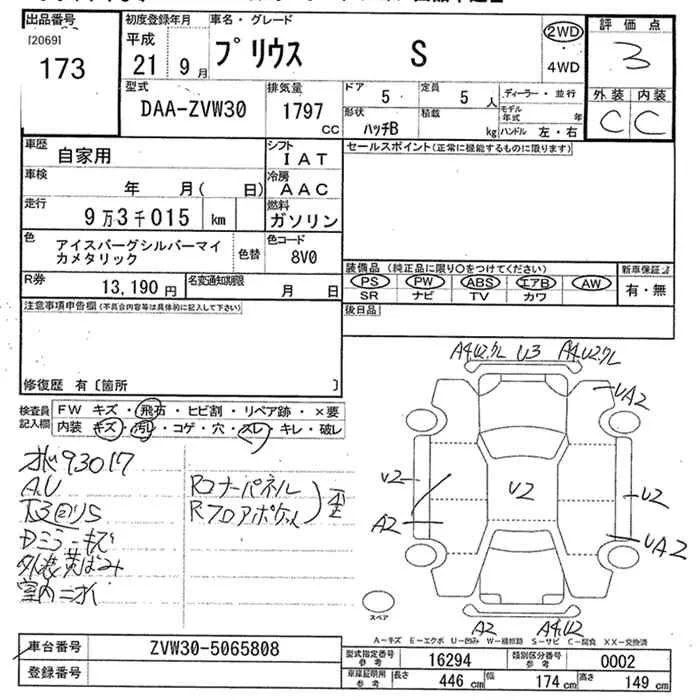 出品番号
[20691
173
初度登録年月
平成
21 9月
車名・グレード
プリウス S
2WD
・
4WD
評価点
3
型式
DAA-ZVW30
排気量
1797
cc
ドア 5
定員 5 人
ディーラー・並行
形状 ハッチB
積載 kg
モデル年式 年
ハンドル 左・右
外装 内装
C C
車歴 自家用
シフト IAT
セールスポイント(正常に機能するものに限ります)
車検 年 月( 日)
冷房 AAC
走行 9万3千015 km
燃料 ガソリン
色 アイスバーグシルバーマイカメタリック
色替
色コード 8V0
R券 13,190円
名変通知期限 月 日
装備品 (純正品に限り〇をつけてください)
新車保証
PS PW ABS エアB AW
SR ナビ TV カワ
有・無
注意事項申告欄(不具合内容等は具体的に記入して下さい)
後日品
修復歴 有〔箇所 〕
検査員記入欄
FW キズ・飛石・ヒビ割・リペア跡・×要
内装 キズ・汚れ・コゲ・穴・スレ・キレ・破レ
93017
A.U
Dミラーキズ
外装黄ばみ
室内ニオイ
Rコーナーパネル
Rフロアポケット
A4.U2.ワレ U3 A4.U2.ワレ
UA2
U2
U2
U2
A2
UA2
A2 A4.U2
スペア
A-キズ E-エクボ U-凹み W-補修跡 S-サビ C-腐食 XX-交換済
車台番号 ZVW30-5065808
登録番号
型式指定番号 参考 16294
類別区分番号 参考 0002
車庫証明用 参考 長さ 446 cm 幅 174 cm 高さ 149 cm